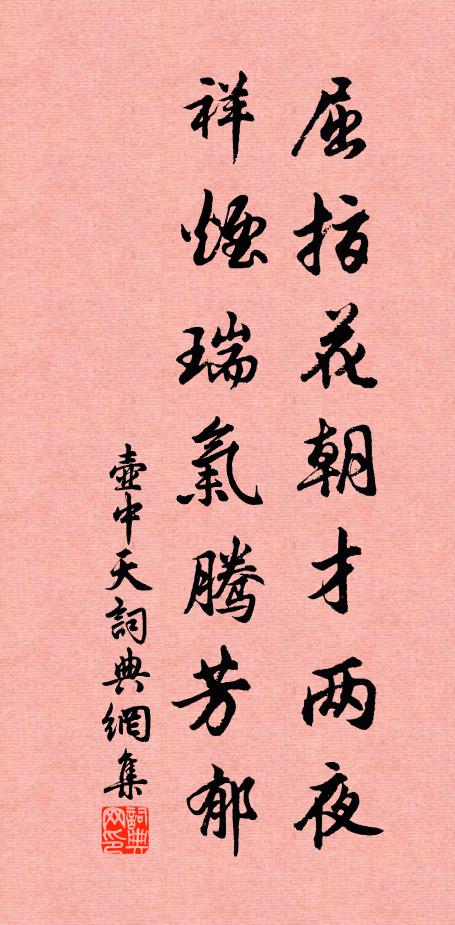 屈指花朝才两夜
祥煙瑞氣腾芳郁
壺中天詞典網集
詞典网印